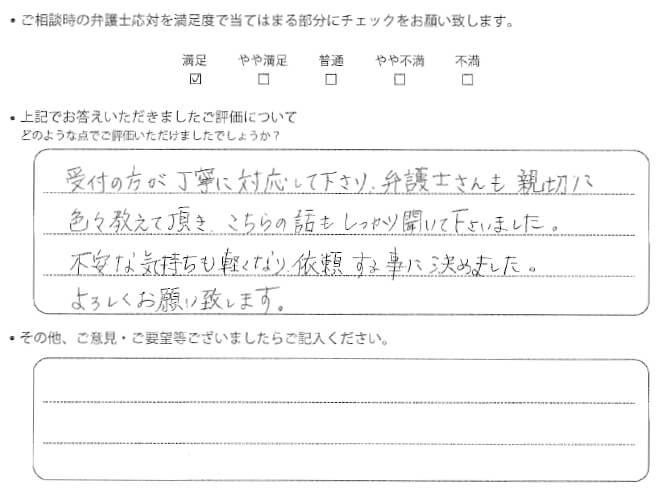 • ご相談時の弁護士応対を満足度で当てはまる部分にチェックをお願い致します。
満足 やや満足 普通 やや不満 不満
☑ ☐ ☐ ☐ ☐
• 上記でお答えいただきましたご評価について
どのような点でご評価いただけましたでしょうか？
受付の方が丁寧に対応して下さり、弁護士さんも親切に
色々教えて頂き、こちらの話もしっかり聞いて下さいました。
不安な気持ちも軽くなり、依頼する事に決めました。
よろしくお願い致します。
• その他、ご意見・ご要望等ございましたらご記入ください。